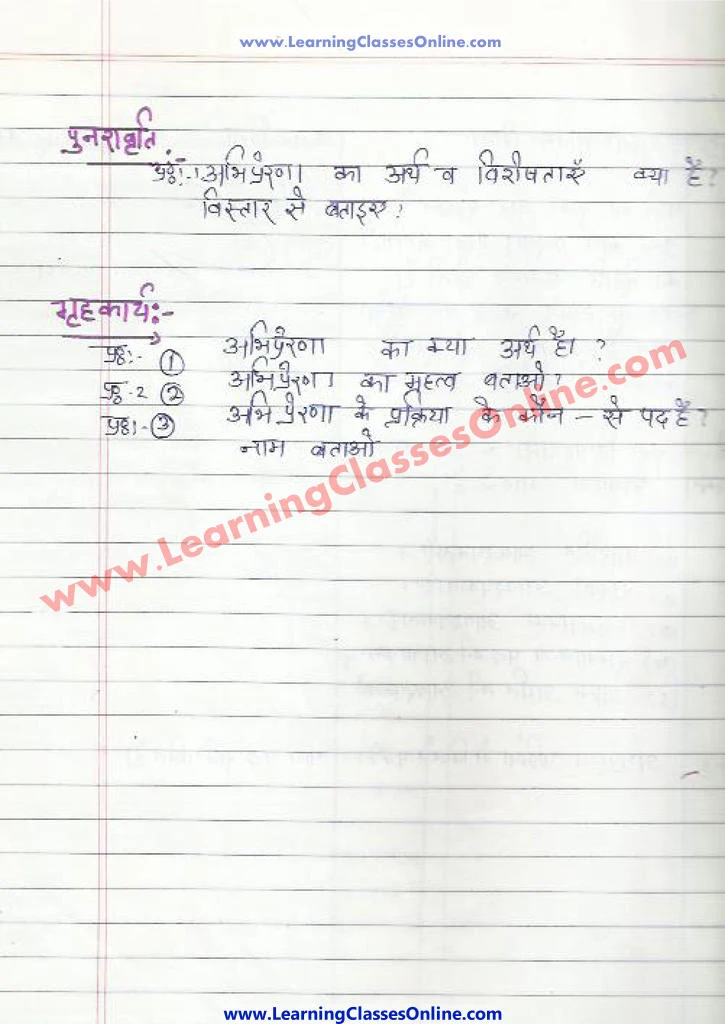 www.LearningClassesOnline.com
पुनरावृति :-
प्रश्न:-1 अभिप्रेरणा का अर्थ व विशेषताएँ क्या है?
विस्तार से बताइए?
गृहकार्य:-
प्रश्न:- ① अभिप्रेरणा का क्या अर्थ है। ?
प्रश्न-2 ② अभिप्रेरणा का महत्व बताओ?
प्रश्न:- ③ अभिप्रेरणा के प्रक्रिया के कौन - से पद है?
नाम बताओ
www.LearningClassesOnline.com
www.LearningClassesOnline.com